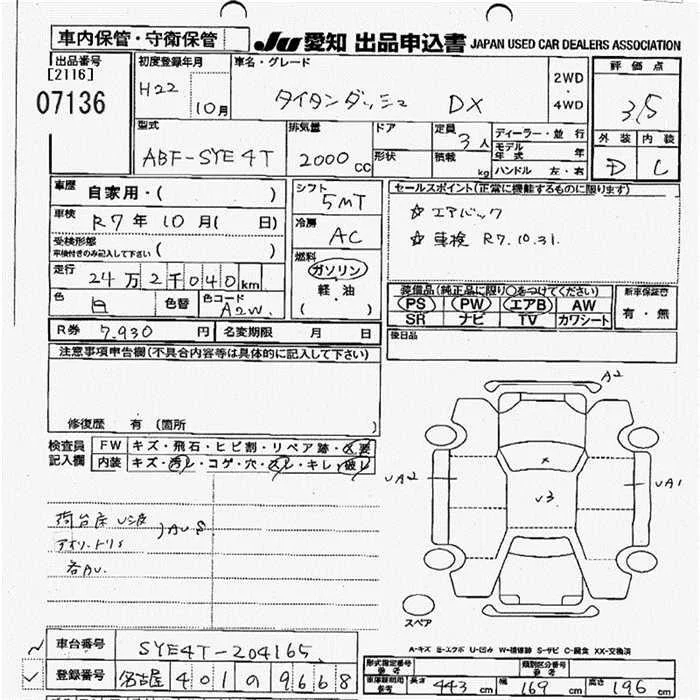 車内保管・守衛保管
JU 愛知 出品申込書 JAPAN USED CAR DEALERS ASSOCIATION
出品番号 [2116] 07136
初度登録年月 H22 10月
車名・グレード タイタンダッシュ DX
2WD・4WD
評価点 3.5
型式 ABF-SYE4T
排気量 2000 CC
ドア 形状
定員 3人
積載 kg
ディーラー・並行
モデル年式 年
ハンドル 左・右
外装 D 内装 C
車歴 自家用・( )
車検 R7年10月( 日)
受検形態 車検付きのみ記入して下さい ( )
走行 24万2千040km
色 白 色替 色コード A2W
シフト 5MT
冷房 AC
燃料 ガソリン 軽油 ( )
セールスポイント(正常に機能するものに限ります)
☆ エアバック
☆ 車検 R7.10.31.
装備品(純正品に限り○をつけてください)
PS PW エアB AW
SR ナビ TV カワシート
新車保証書 有・無
R券 7,930 円 名変期限 月 日
後日品
注意事項申告欄(不具合内容等は具体的に記入して下さい)
修復歴 有 (箇所 )
検査員記入欄
FW キズ・飛石・ヒビ割・リペア跡・×要
内装 キズ・汚レ・コゲ・穴・スレ・キレ・破レ
荷台床
アオリ
各AU.
A2
UA2
UA1
U3
×
スペア
A-キズ E-エクボ U-凹み W-補修跡 S-サビ C-腐食 XX-交換済
車台番号 SYE4T-204165
登録番号 名古屋 401 の 9668
形式指定番号 参考
類別区分番号 参考
車庫証明用参考 長さ 443cm 幅 169cm 高さ 196cm